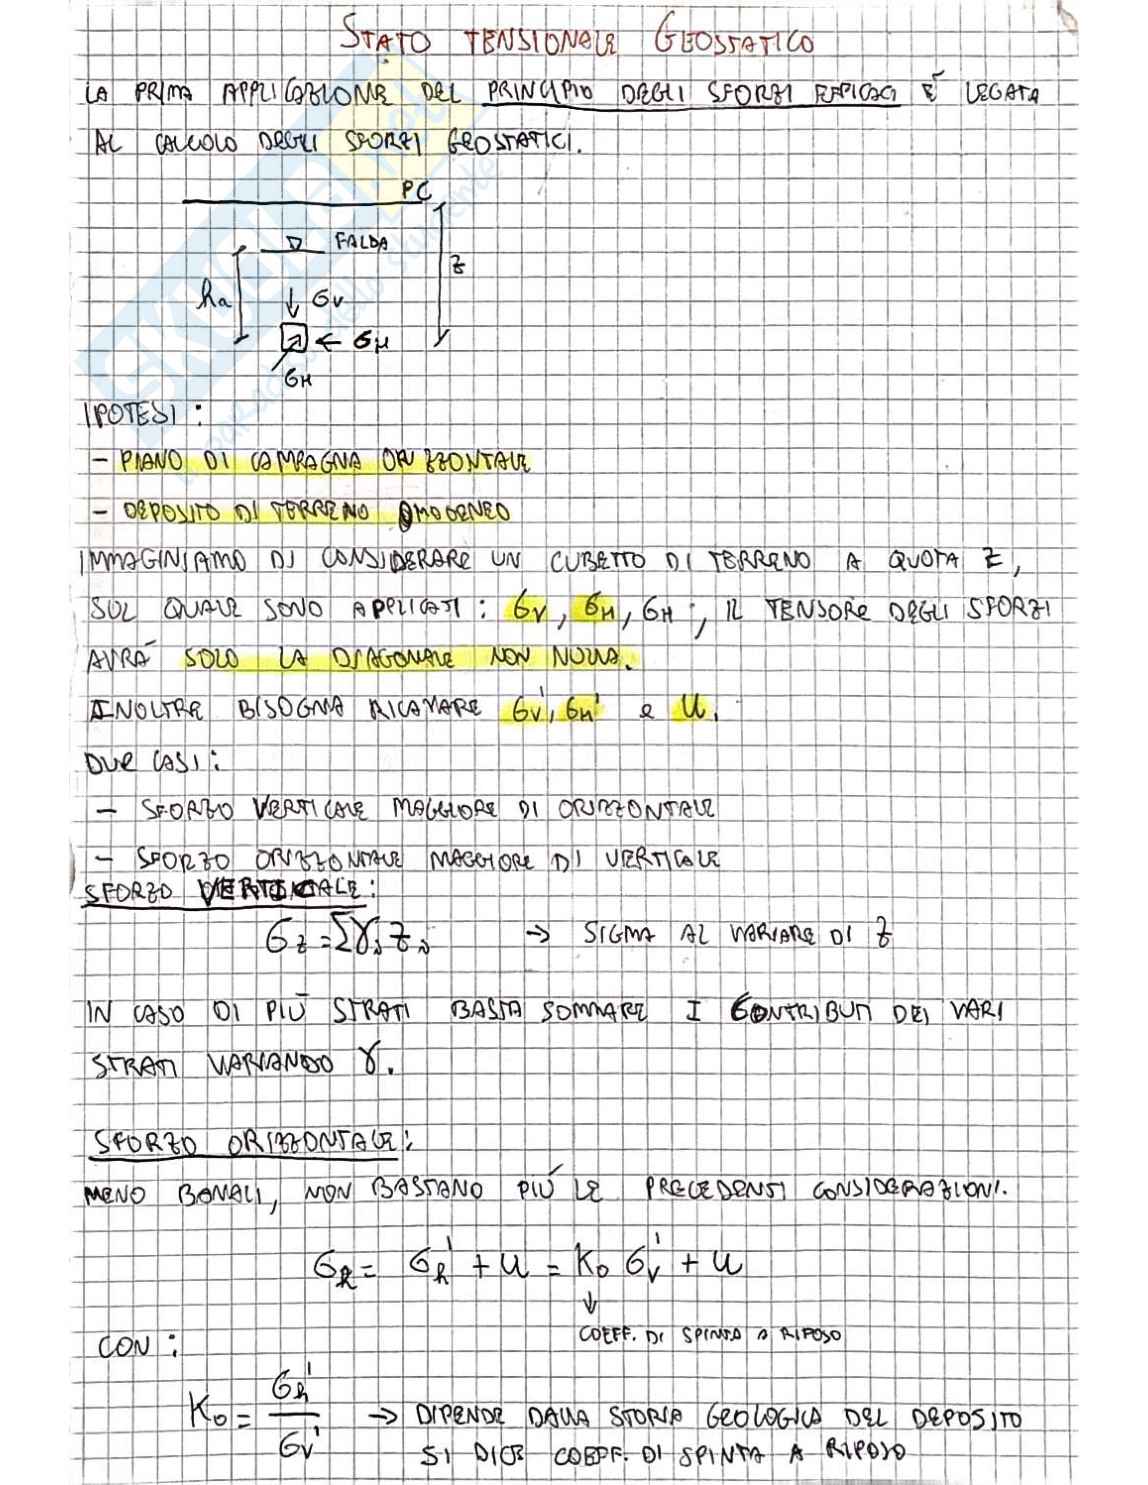 STATO TENSIONALE GEOSTATICO
LA PRIMA APPLICAZIONE DEL PRINCIPIO DEGLI SFORZI EFFICACI È LEGATA
AL CALCOLO DEGLI SFORZI GEOSTATICI.
PC
FALDA
z
ha
σv
σH
σH
IPOTESI:
- PIANO DI CAMPAGNA ORIZZONTALE
- DEPOSITO DI TERRENO OMOGENEO
IMMAGINIAMO DI CONSIDERARE UN CUBETTO DI TERRENO A QUOTA Z,
SUL QUALE SONO APPLICATI: σV, σH, σH; IL TENSORE DEGLI SFORZI
AVRÀ SOLO LA DIAGONALE NON NULLA.
INOLTRE BISOGNA RICAVARE σv', σH' e u.
DUE CASI:
- SFORZO VERTICALE MAGGIORE DI ORIZZONTALE
- SFORZO ORIZZONTALE MAGGIORE DI VERTICALE
SFORZO VERTICALE:
σz = Σγi zi → SIGMA AL VARIARE DI z
IN CASO DI PIÙ STRATI BASTA SOMMARE I CONTRIBUTI DEI VARI
STRATI VARIANDO γ.
SFORZO ORIZZONTALE:
MENO BANALI, NON BASTANO PIÙ LE PRECEDENTI CONSIDERAZIONI.
σh = σh' + u = K0 σv' + u
↓
COEFF. DI SPINTA A RIPOSO
CON:
K0 = σh' / σv' → DIPENDE DALLA STORIA GEOLOGICA DEL DEPOSITO
SI DICE COEFF. DI SPINTA A RIPOSO